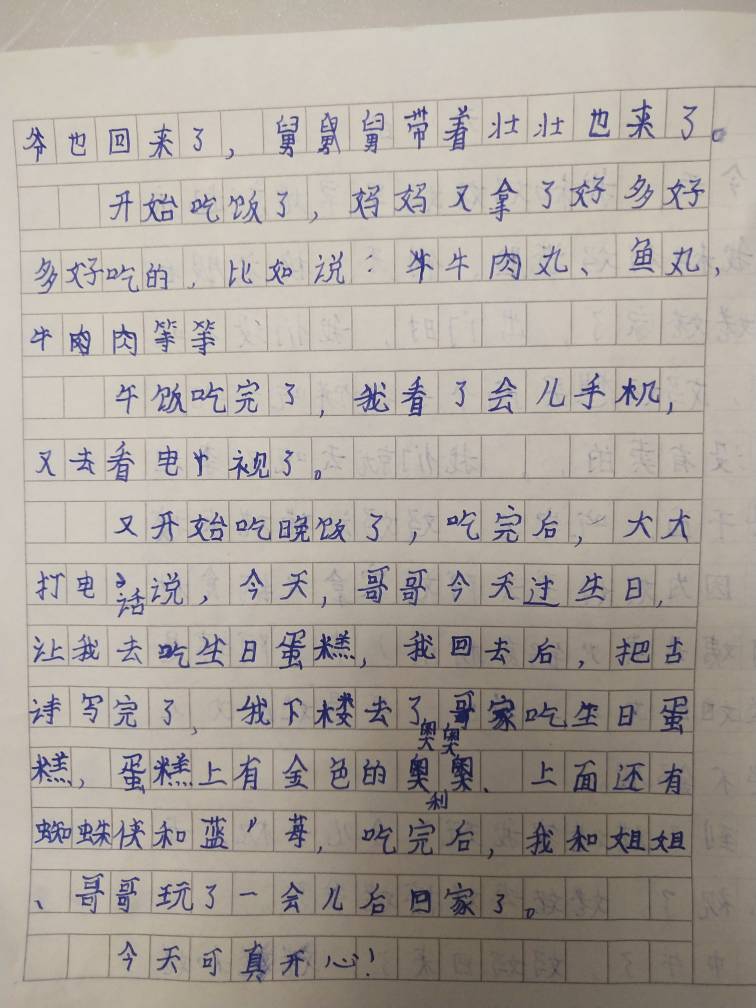 爷也回来了，舅舅舅带着壮壮也来了。
开始吃饭了，妈妈又拿了好多好
多好吃的，比如说：牛牛肉丸、鱼丸，
牛肉肉等等
午饭吃完了，我看了会儿手机，
又去看电视了。
又开始吃晚饭了，吃完后，大大
打电话说，今天，哥哥今天过生日，
让我去吃生日蛋糕，我回去后，把古
诗写完了，我下楼去了哥家吃生日蛋
糕，蛋糕上有金色的奥奥、上面还有
奥奥
利
蜘蛛侠和蓝莓，吃完后，我和姐姐
、哥哥玩了一会儿后回家了。
今天可真开心！